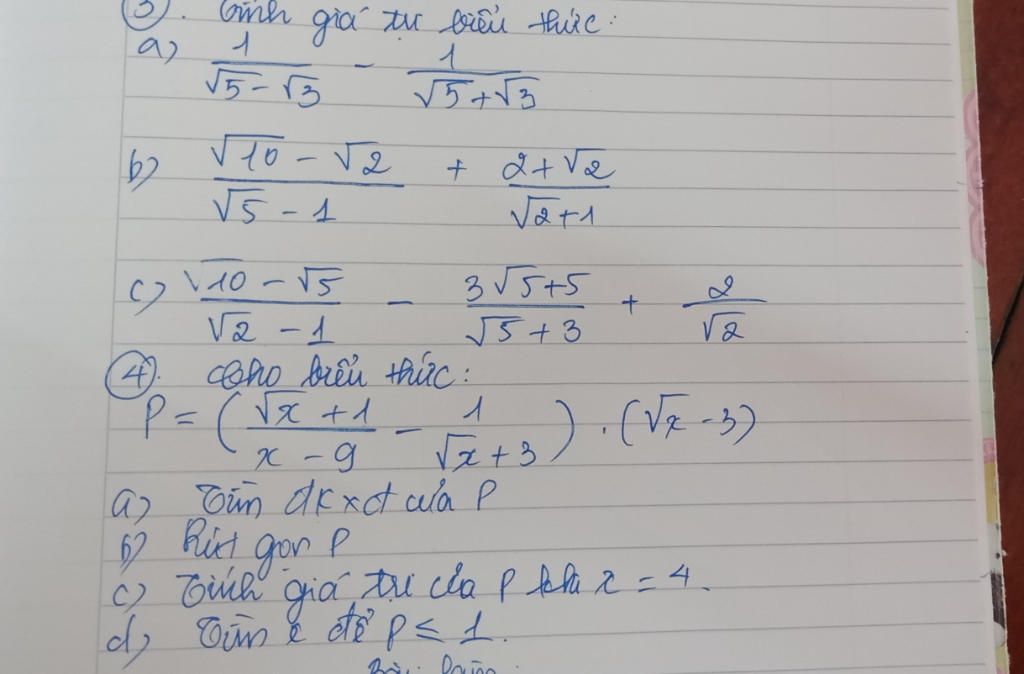 ③. Tính giá trị biểu thức:
a) 1/(√5 - √3) - 1/(√5 + √3)
b) (√10 - √2)/(√5 - 1) + (2 + √2)/(√2 + 1)
c) (√10 - √5)/(√2 - 1) - (3√5 + 5)/(√5 + 3) + 2/√2
④. Cho biểu thức:
P = ( (√x + 1)/(x - 9) - 1/(√x + 3) ) . (√x - 3)
a) Tìm đkxđ của P
b) Rút gọn P
c) Tính giá trị của P khi x = 4.
d) Tìm x để P ≤ 1.